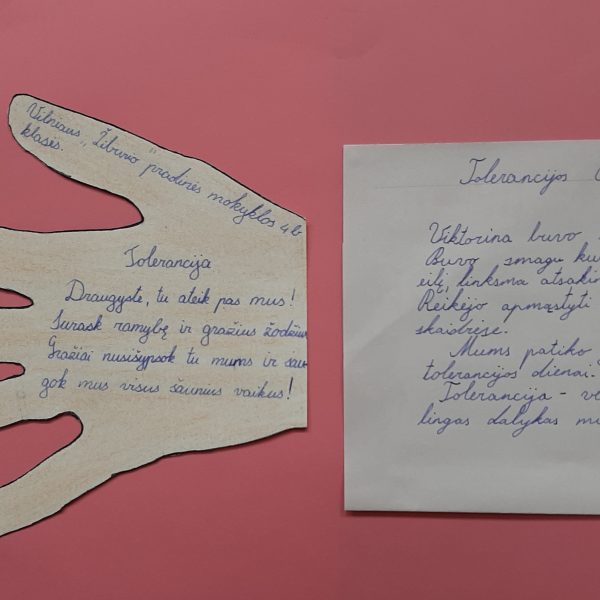 Vilniaus "Žiburio" pradinės mokyklos 4b
klasės.
Tolerancija
Draugyste, tu ateik pas mus!
Surask ramybę ir gražius žodžius
Gražiai nusišypsok tu mums ir sau-
gok mus visus šaunius vaikus!
Tolerancijos
Viktorina buvo
Buvo smagu
eilį, linksma
Reikėjo apmąstyti
skaidrėse.
Mums patiko
tolerancijos dienai.
Tolerancija -
lingas dalykas